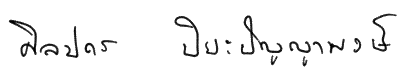 ศิลปกร ปิยะปัญญาพงษ์